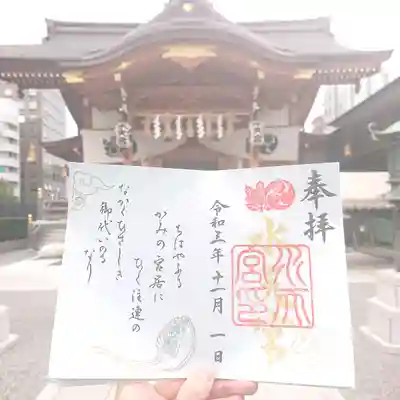 奉拝
水天宮
令和三年十一月一日
ちはやふる
かみの宮居に
ひく注連の
なかくひさしき
御代いのる
なり